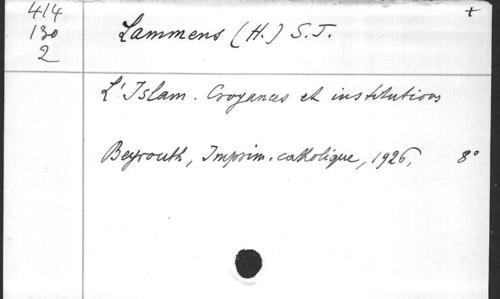 414
130
2
+
Lammens (H.) S.J.
L'Islam. Croyances et institutions
Beyrouth, Imprim. catholique, 1926, 8°